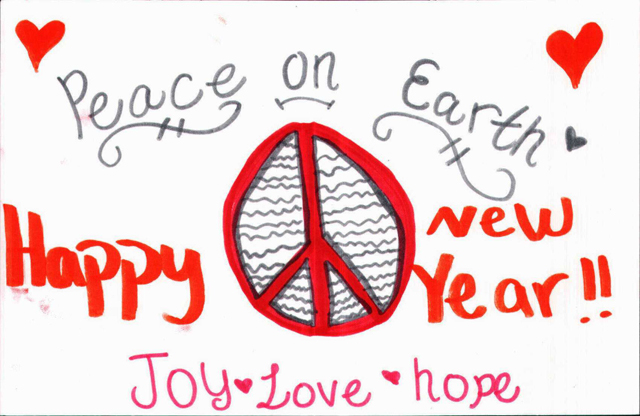 Peace on Earth
Happy New
Year!!
Joy Love hope